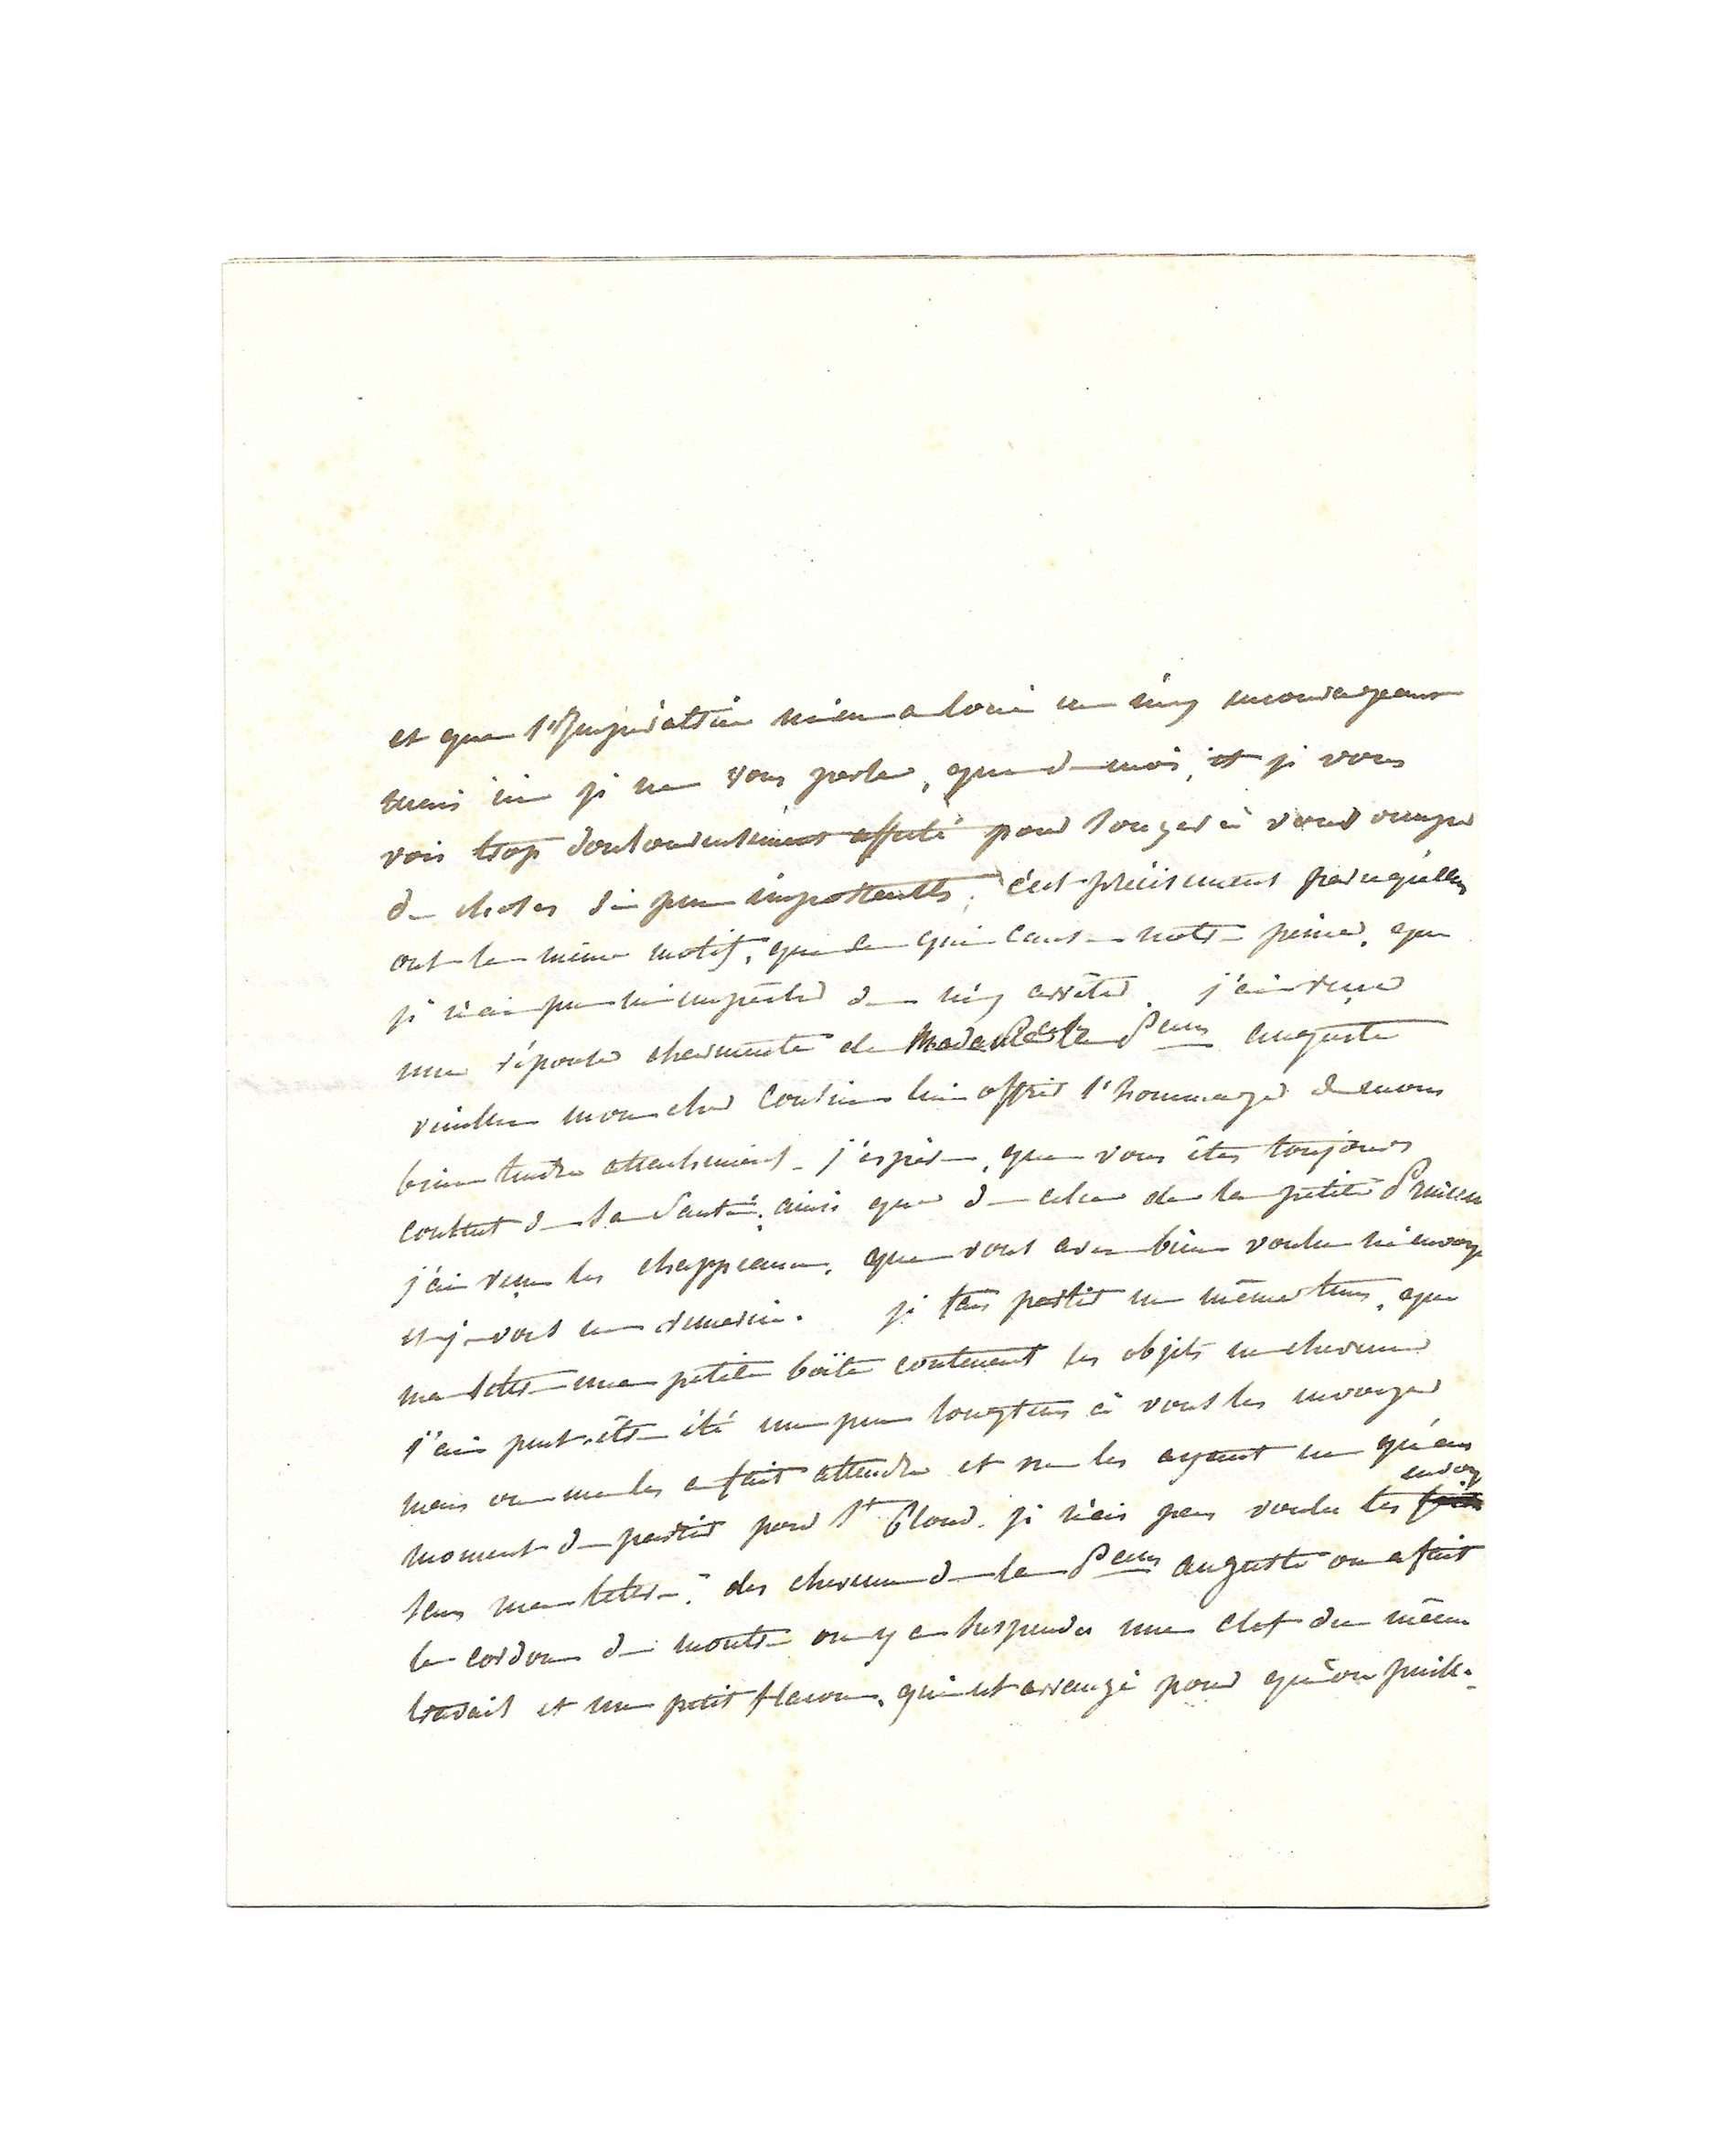 et que l'Impératrice m'en a loué en m'y encourageant
mais ici je ne vous parle, que de moi, et je vous
vois trop douloureusement affecté pour songer à vous occuper
de choses si peu importantes; c'est précisement parcequ'elles
ont le même motif, que ce qui cause notre peine, que
je n'ai pu m'empêcher de m'y arrêter. j'ai reçue
une réponse charmante de Madame la P.cesse auguste
veuillez mon cher Cousin lui offrir l'hommage de mon
bien tendre attachement. j'espère, que vous êtes toujours
content de sa Santé, ainsi que de celle de la petite Princesse
j'ai reçu les chappeaux, que vous avez bien voulu m'envoyer
et je vous en remercie. je fais partir en même tems, que
ma lettre une petite boîte contenant les objets en cheveux
j'ai peut-être été un peu longtems à vous les envoyer
mais on me les a fait attendre et ne les ayant eu qu'au
moment de partir pour S.t Cloud. je n'ai pas voulu les envoyer
sans ma lettre. des cheveux de la P.cesse auguste on a fait
le cordon de montre on y a suspendu une clef du même
travail et un petit flacon, qui est arrangé pour qu'on puisse